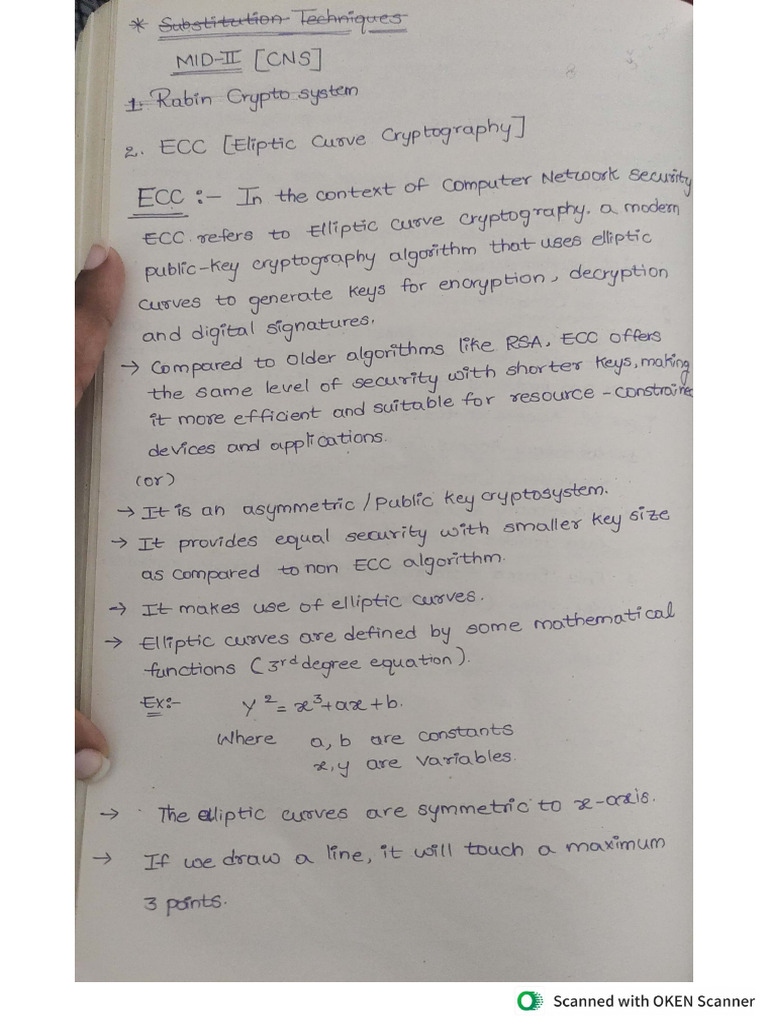 * Substitution Techniques
MID-II [CNS]
1. Rabin Crypto system
2. ECC [Eliptic Curve Cryptography]
ECC :- In the context of Computer Network security
ECC refers to Elliptic curve cryptography. a modern
public-key cryptography algorithm that uses elliptic
curves to generate keys for encryption, decryption
and digital signatures.
→ Compared to older algorithms like RSA, ECC offers
the same level of security with shorter keys, making
it more efficient and suitable for resource - constrained
devices and applications.
(or)
→ It is an asymmetric / Public key cryptosystem.
→ It provides equal security with smaller key size
as compared to non ECC algorithm.
→ It makes use of elliptic curves.
→ Elliptic curves are defined by some mathematical
functions (3rd degree equation).
Ex:- y² = x³ + ax + b.
Where a, b are constants
x, y are variables.
→ The elliptic curves are symmetric to x-axis.
→ If we draw a line, it will touch a maximum
3 points.
Scanned with OKEN Scanner